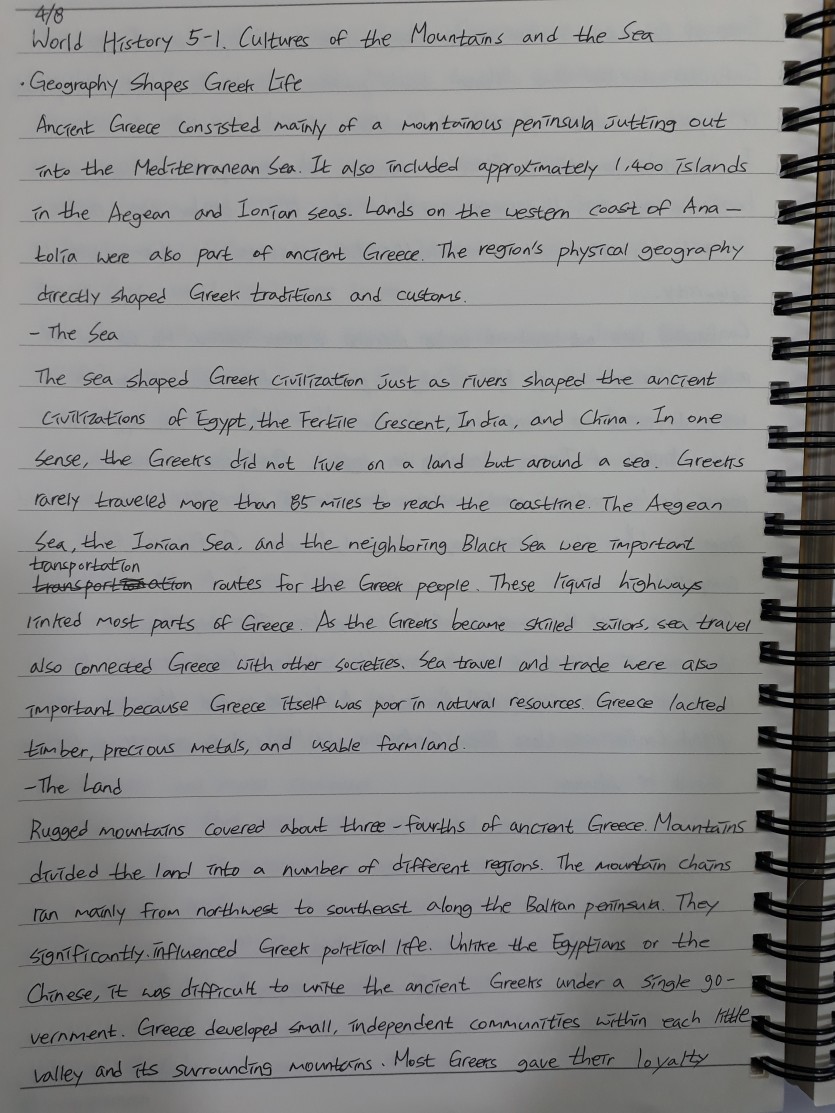 4/8
World History 5-1. Cultures of the Mountains and the Sea
· Geography Shapes Greek Life
Ancient Greece consisted mainly of a mountainous peninsula jutting out
into the Mediterranean Sea. It also included approximately 1,400 islands
in the Aegean and Ionian seas. Lands on the western coast of Ana-
tolia were also part of ancient Greece. The region's physical geography
directly shaped Greek traditions and customs.
- The Sea
The sea shaped Greek civilization just as rivers shaped the ancient
civilizations of Egypt, the Fertile Crescent, India, and China. In one
sense, the Greeks did not live on a land but around a sea. Greeks
rarely traveled more than 85 miles to reach the coastline. The Aegean
Sea, the Ionian Sea, and the neighboring Black Sea were important
transportation
routes for the Greek people. These liquid highways
linked most parts of Greece. As the Greeks became skilled sailors, sea travel
also connected Greece with other societies. Sea travel and trade were also
important because Greece itself was poor in natural resources. Greece lacked
timber, precious metals, and usable farmland.
- The Land
Rugged mountains covered about three-fourths of ancient Greece. Mountains
divided the land into a number of different regions. The mountain chains
ran mainly from northwest to southeast along the Balkan peninsula. They
significantly influenced Greek political life. Unlike the Egyptians or the
Chinese, it was difficult to unite the ancient Greeks under a single go-
vernment. Greece developed small, independent communities within each little
valley and its surrounding mountains. Most Greers gave their loyalty